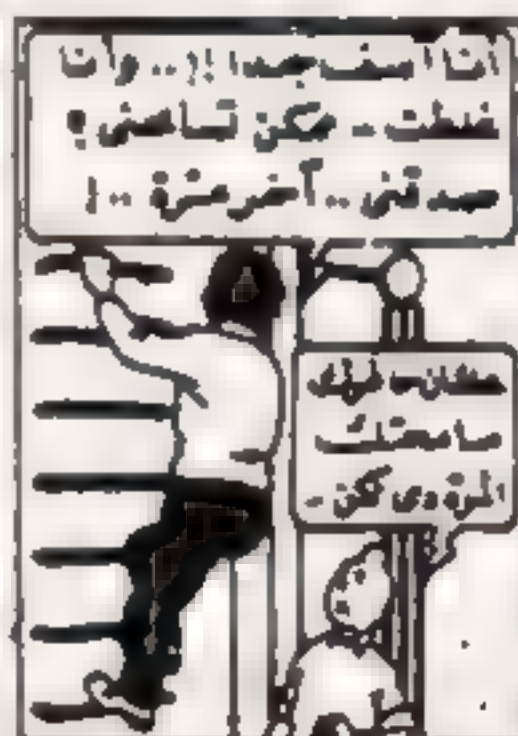 أنا آسف جدا !! .. وأنا
غلطت - ممكن تسامحني ؟
صدقني .. آخر مرة .. !
علشان خاطري
سامحتك
المرة دي لكن -